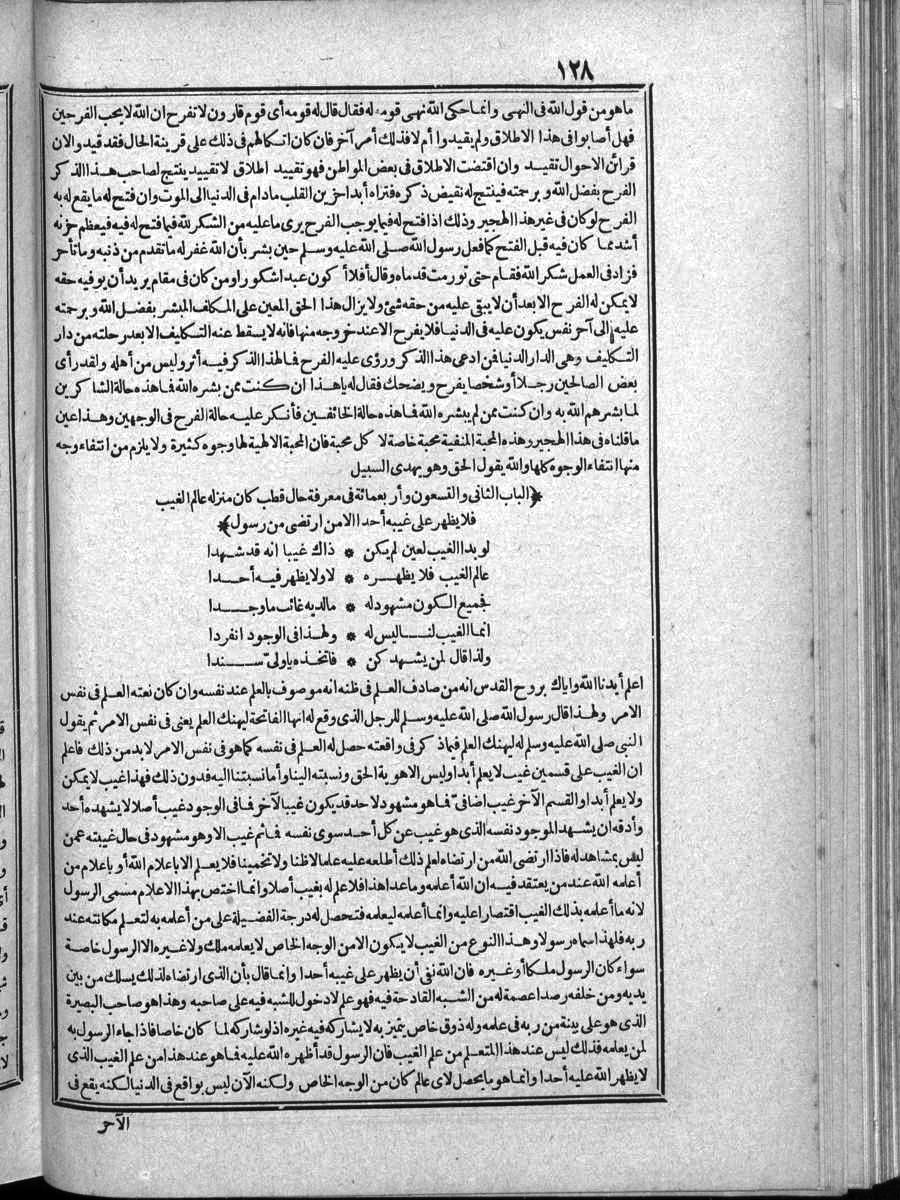 ١٢٨
ما هو من قول الله فى النهى وانما حكى الله نهى قومه له فقال قال له قومه أى قوم قارون لا تفرح ان الله لا يحب الفرحين
فهل أصابوا فى هذا الاطلاق ولم يقيدوا أم لا فذلك أمر آخر فان كان اتكالهم فى ذلك على قرينة الحال فقد قيدوا لان
قرائن الاحوال تقيد وان اقتضت الاطلاق فى بعض المواطن فهو تقييد اطلاق لا تقييد ينتج لصاحب هذا الذكر
الفرح بفضل الله وبرحمته فينتج له نقيض ذكره فتراه أبدا حزين القلب مادام فى الدنيا الى الموت وان فتح له ما يقع له به
الفرح لو كان فى غير هذا الهجير وذلك اذا فتح له فيما يوجب الفرح يرى ما عليه من الشكر لله فيما فتح له فيه فيعظم حزنه
أشد مما كان فيه قبل الفتح كما فعل رسول الله صلى الله عليه وسلم حين بشر بأن الله غفر له ما تقدم من ذنبه وما تأخر
فزاد فى العمل شكر الله فقام حتى تورمت قدماه وقال أفلا أكون عبدا شكورا ومن كان فى مقام يريد أن يوفيه حقه
لا يمكن له الفرح الا بعد أن لا يبقى عليه من حقه شئ ولا يزال هذا الحق المعين على المكلف المبشر بفضل الله وبرحمته
عليه الى آخر نفس يكون عليه فى الدنيا فلا يفرح الا عند خروجه منها فانه لا يسقط عنه التكليف الا بعد رحلته من دار
التكليف وهى الدار الدنيا فمن ادعى هذا الذكر ورؤى عليه الفرح فما لهذا الذكر فيه أثر وليس من أهله ولقد رأى
بعض الصالحين رجلا أو شخصا يفرح ويضحك فقال له يا هذا ان كنت ممن بشره الله فما هذه حالة الشاكرين
لما بشرهم الله به وان كنت ممن لم يبشره الله فما هذه حالة الخائفين فأنكر عليه حالة الفرح فى الوجهين وهذا عين
ما قلناه فى هذا الهجير وهذه المحبة المنفية محبة خاصة لا كل محبة فان المحبة الالهية لها وجوه كثيرة ولا يلزم من انتفاء وجه
منها انتفاء الوجوه كلها والله يقول الحق وهو يهدى السبيل
﴿الباب الثانى والتسعون وأربعمائة فى معرفة حال قطب كان منزله عالم الغيب
فلا يظهر على غيبه أحدا الا من ارتضى من رسول﴾
لو بدا الغيب لعين لم يكن * ذاك غيبا انه قد شهدا
عالم الغيب فلا يظهره * لا ولا يظهر فيه أحدا
فجميع الكون مشهود له * ما لديه غائب ما وجدا
انما الغيب لنا ليس له * ولهذا فى الوجود انفردا
ولذا قال لمن يشهد كن * فاتخذه يا ولىّ سندا
اعلم أيدنا الله واياك بروح القدس انه من صادف العلم فى ظنه انه موصوف بالعلم عند نفسه وان كان نعته العلم فى نفس
الامر ولهذا قال رسول الله صلى الله عليه وسلم للرجل الذى وقع له انها الفاتحة ليهنك العلم يعنى فى نفس الامر ثم يقول
النبى صلى الله عليه وسلم له ليهنك العلم فيما ذكر فى واقعته حصل له العلم فى نفسه كما هو فى نفس الامر لابد من ذلك فاعلم
ان الغيب على قسمين غيب لا يعلم أبدا وليس الا هوية الحق ونسبته الينا وأما نسبتنا اليه فدون ذلك فهذا غيب لا يمكن
ولا يعلم أبدا والقسم الآخر غيب اضافىّ فما هو مشهود لاحد قد يكون غيبا لآخر فما فى الوجود غيب أصلا لا يشهده أحد
وأدقه ان يشهد الموجود نفسه الذى هو غيب عن كل أحد سوى نفسه فما ثم غيب الا وهو مشهود فى حال غيبته عمن
ليس بمشاهد له فاذا ارتضى الله من ارتضاه لعلم ذلك أطلعه عليه علما لا ظنا ولا تخمينا فلا يعلم الا باعلام الله أو باعلام من
أعلمه الله عند من يعتقد فيه ان الله أعلمه وما عدا هذا فلا علم له بغيب أصلا وانما اختص بهذا الاعلام مسمى الرسول
لانه ما أعلمه بذلك الغيب اقتصارا عليه وانما أعلمه ليعلمه فتحصل له درجة الفضيلة على من أعلمه به لتعلم مكانته عند
ربه فلهذا سماه رسولا وهذا النوع من الغيب لا يكون الا من الوجه الخاص لا يعلمه ملك ولا غيره الا الرسول خاصة
سواء كان الرسول ملكا أو غيره فان الله نفى أن يظهر على غيبه أحدا وانما قال بأن الذى ارتضاه لذلك يسلك من بين
يديه ومن خلفه رصدا عصمة له من الشبه القادحة فيه فهو علم لا دخول للشبه فيه على صاحبه وهذا هو صاحب البصيرة
الذى هو على بينة من ربه فى علمه وله ذوق خاص يتميز به لا يشاركه فيه غيره اذ لو شاركه لما كان خاصا فاذا جاء الرسول به
لمن يعلمه فذلك ليس عند هذا المتعلم من علم الغيب فان الرسول قد أظهره الله عليه فما هو عند هذا من علم الغيب الذى
لا يظهر الله عليه أحدا وانما هو ما يحصل لاى عالم كان من الوجه الخاص ولكنه الآن ليس بواقع فى الدنيا لكنه يقع فى
الآخر